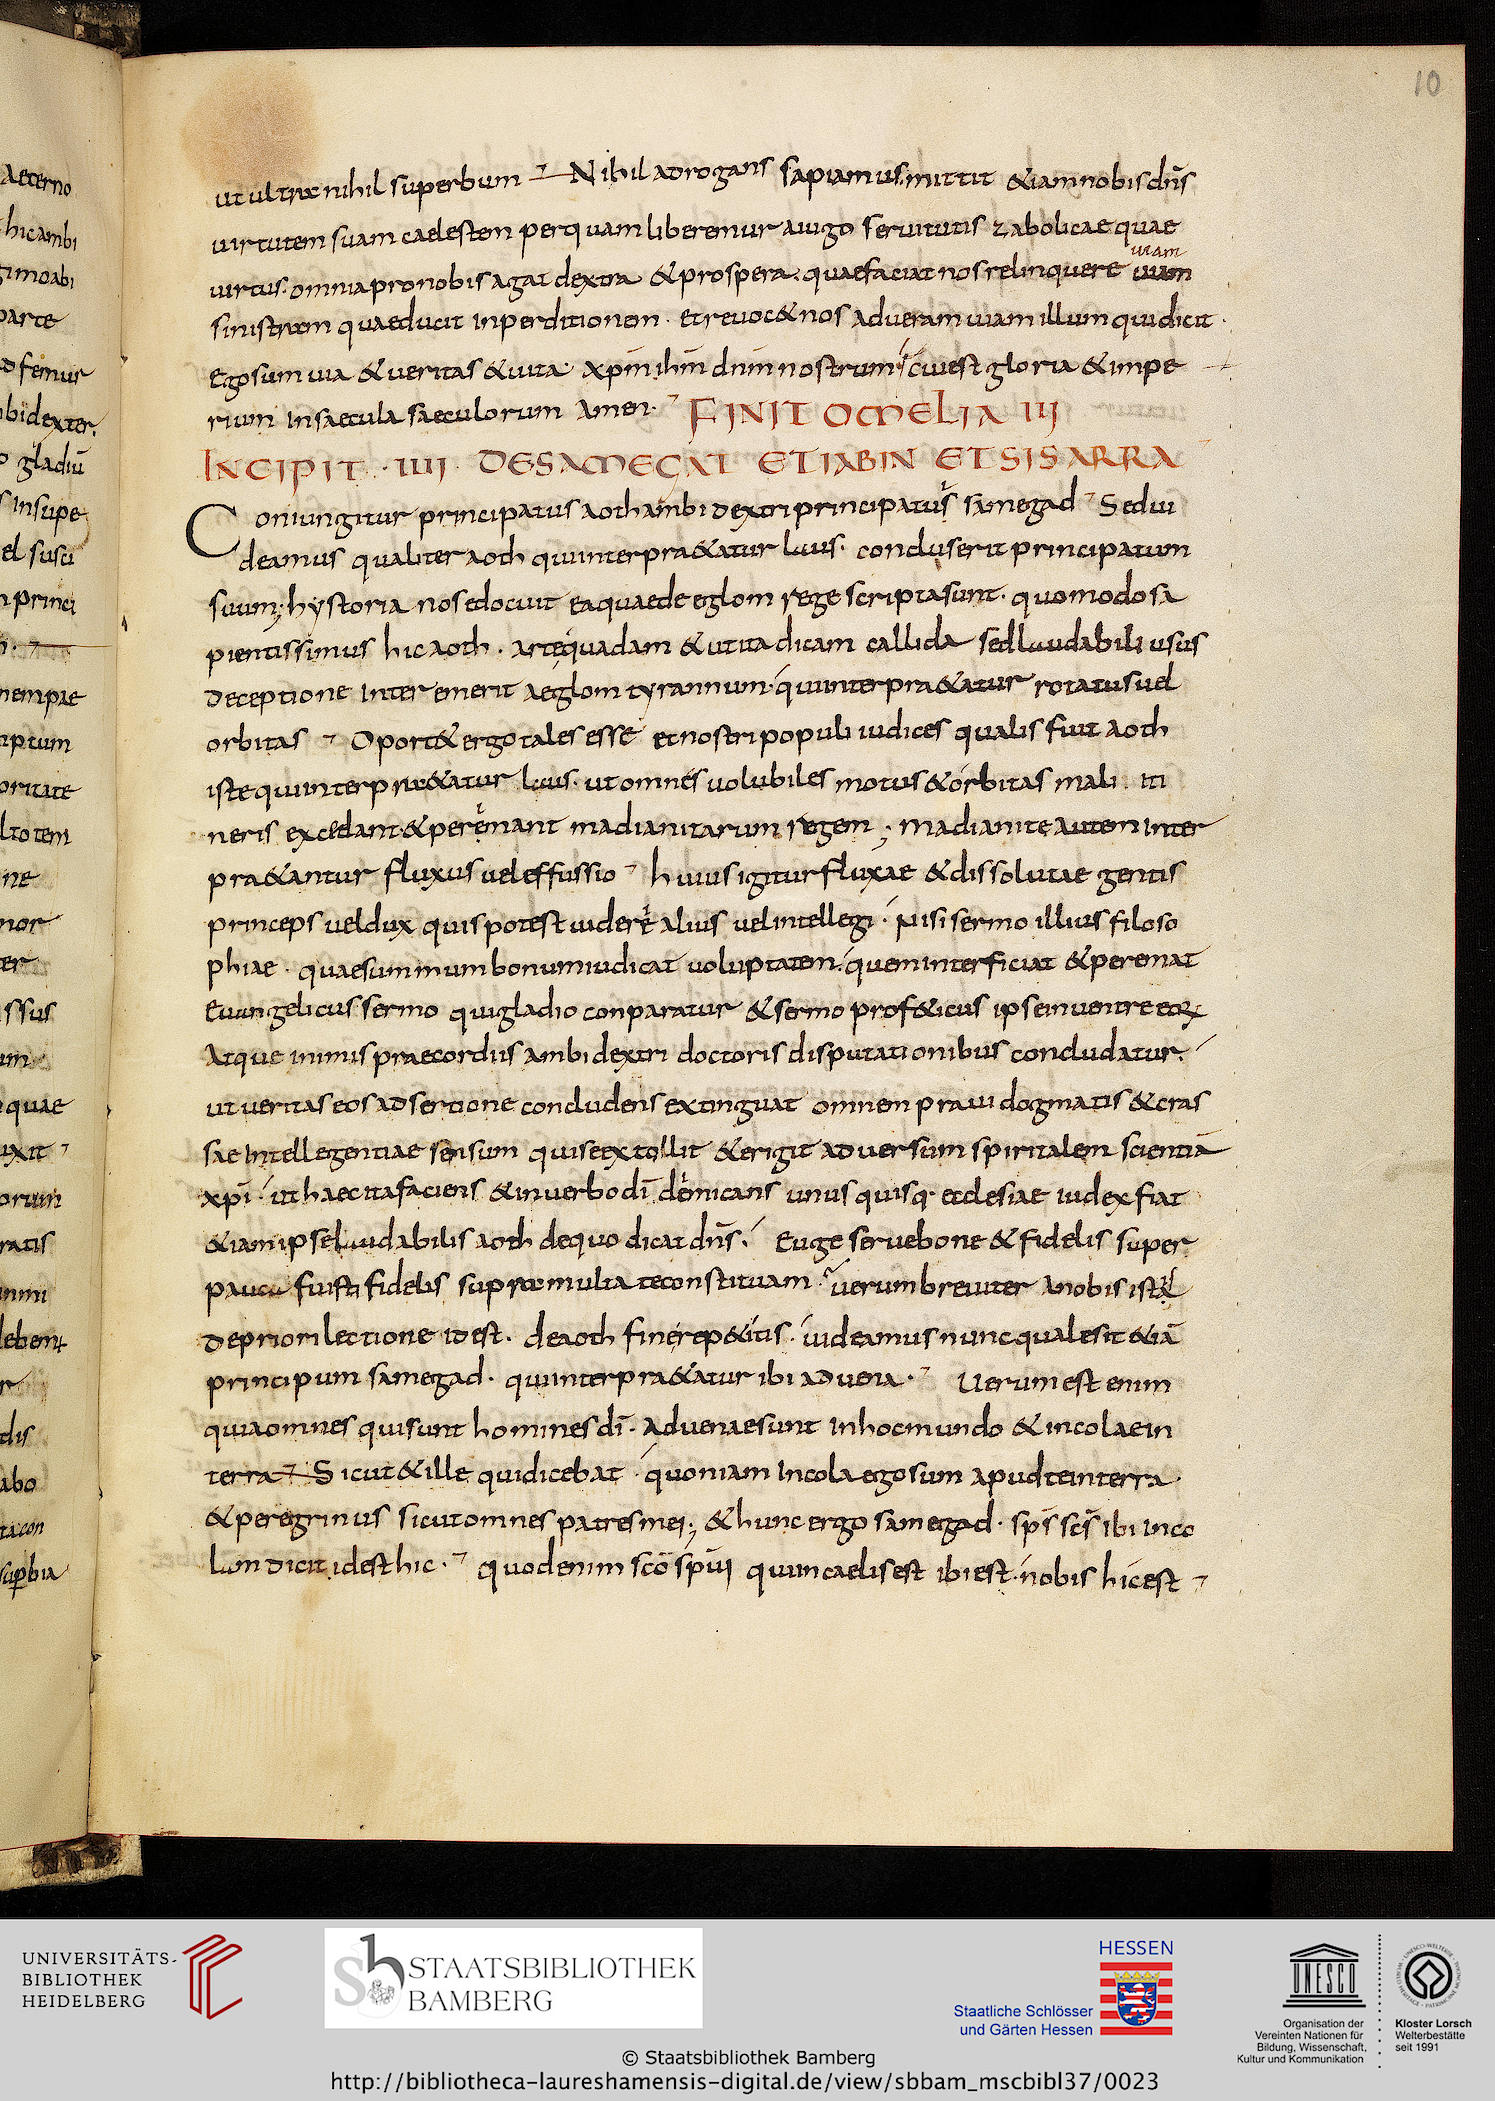 10
ut ultra nihil superbum Nihil adrogans sapiamus mittit &iam nobis dn̄s
uirtutem suam caelestem per quam liberemur a iugo seruitutis zabolicae quae
uirtus. omnia pro nobis agat dextra & prospera. quae faciat nos relinquere uiam
uiam
sinistram quae ducit in perditionem. et reuoc& nos ad ueram uiam illum qui dicit
Ego sum uia & ueritas & uita. xp̄m ih̄m dn̄m nostrum cui est gloria & impe
rium In saecula saeculorum Amen.
FINIT OMELIA III
INCIPIT .IIII. DE SAMEGAT ET IABIN ET SISARRA
Coniungitur principatus aoth ambidextri principatus samegad Sed ui
deamus qualiter aoth qui interpra&atur laus. concluserit principatum
suum; hystoria nos edocuit ea quae de eglom rege scripta sunt. quomodo sa
pientissimus hic aoth. arte quadam & ut ita dicam callida sed laudabili usus
deceptione Interemerit aeglom tyrannum. qui interpra&atur rotatus uel
orbitas Oport& ergo tales esse et nostri populi iudices qualis fuit aoth
iste qui interpra&atur laus. ut omnes uolubiles motus & orbitas mali. iti
neris excedant & peremant madianitarum regem; Madianite autem Inter
pra&antur fluxus uel effussio huius igitur fluxae & dissolutae gentis
princeps uel dux quis potest uidere alius uel intellegi. Nisi sermo illius filoso
phiae. quae summum bonum iudicat uoluptatem. quem interficiat & peremat
Euangelicus sermo qui gladio conparatur & sermo prof&icus ipse in uentre eoR
Atque inimis praecordiis ambidextri doctoris disputationibus concludatur.
ut ueritas eos adsertione concludens extinguat omnem praui dogmatis & cras
sae Intellegentiae sensum qui se extollit & erigit aduersum spiritalem scientiā
xp̄i. ut haec ita faciens & in uerbo dī demicans unus quisq· ecclesiae iudex fiat
&iam ipse laudabilis aoth de quo dicat dn̄s. Euge serue bone & fidelis super
pauca fuisti fidelis supra multa te constituam. uerum breuiter A nobis ist
de priori lectione id est. de aoth fine rep&itis. uideamus nunc quale sit &iā
principum samegad. qui interpra&atur ibi aduena. Uerum est enim
quia omnes qui sunt homines dī. Aduenae sunt In hoc mundo & incolae in
terra Sicut & ille qui dicebat. quoniam Incola ego sum apud te in terra
& peregrinus sicut omnes patres mei; & hunc ergo samegad. sp̄s sc̄s ibi Inco
lam dicit id est hic. quod enim sc̄o sp̄ui qui in caelis est ibi est. nobis hic est
UNIVERSITÄTS-
BIBLIOTHEK
HEIDELBERG
STAATSBIBLIOTHEK
BAMBERG
HESSEN
Staatliche Schlösser
und Gärten Hessen
UNESCO
Organisation der
Vereinten Nationen für
Bildung, Wissenschaft,
Kultur und Kommunikation
Kloster Lorsch
Welterbestätte
seit 1991
© Staatsbibliothek Bamberg
http://bibliotheca-laureshamensis-digital.de/view/sbbam_mscbibl37/0023